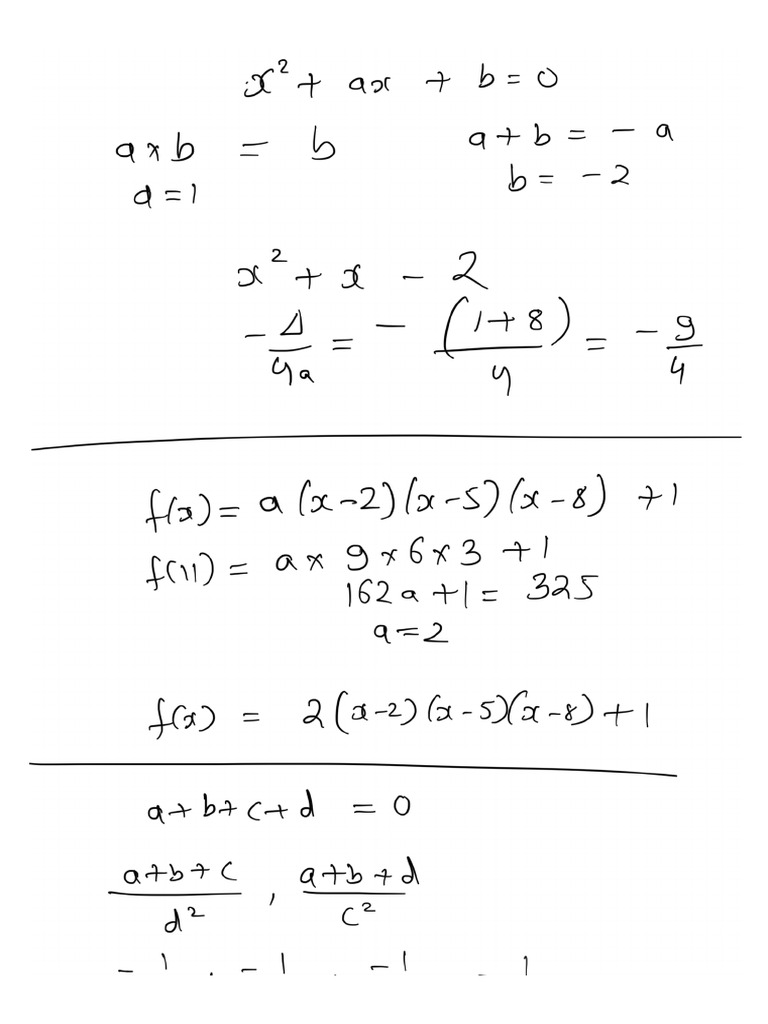 x² + ax + b = 0
a × b = b    a + b = - a
a = 1    b = - 2
x² + x - 2
- Δ/4a = - (1 + 8)/4 = - 9/4
f(x) = a (x-2) (x-5) (x-8) + 1
f(11) = a × 9 × 6 × 3 + 1
162a + 1 = 325
a = 2
f(x) = 2 (x-2) (x-5) (x-8) + 1
a + b + c + d = 0
(a+b+c)/d² , (a+b+d)/c²
- 1 , - 1 , - 1 , - 1